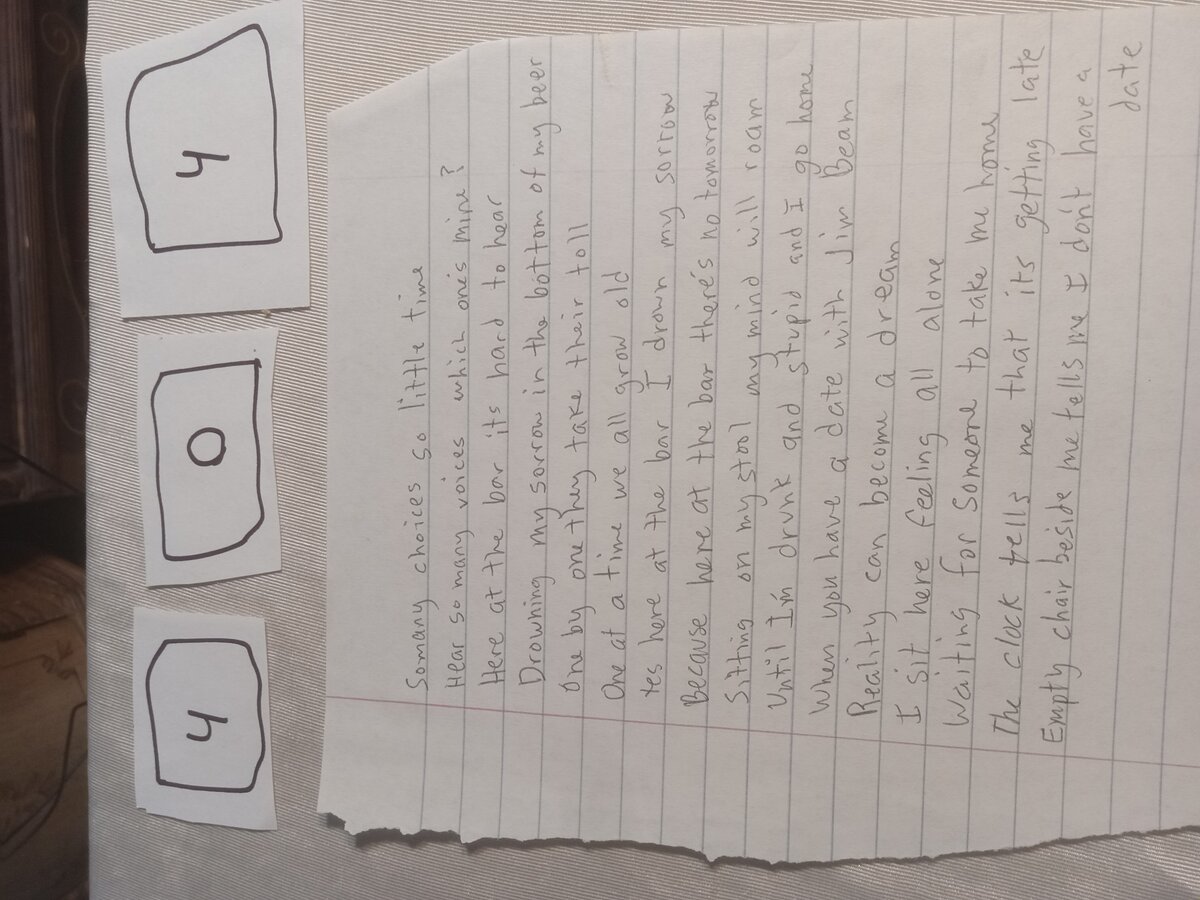 4
0
4
Somany choices so little time
Hear so many voices which one's mine?
Here at the bar its hard to hear
Drowning my sorrow in the bottom of my beer
One by one they take their toll
One at a time we all grow old
Yes here at the bar I drown my sorrow
Because here at the bar there's no tomorrow
Sitting on my stool my mind will roam
Until I'm drunk and stupid and I go home
When you have a date with Jim Beam
Reality can become a dream
I sit here feeling all alone
Waiting for someone to take me home
The clock tells me that its getting late
Empty chair beside me tells me I don't have a
date